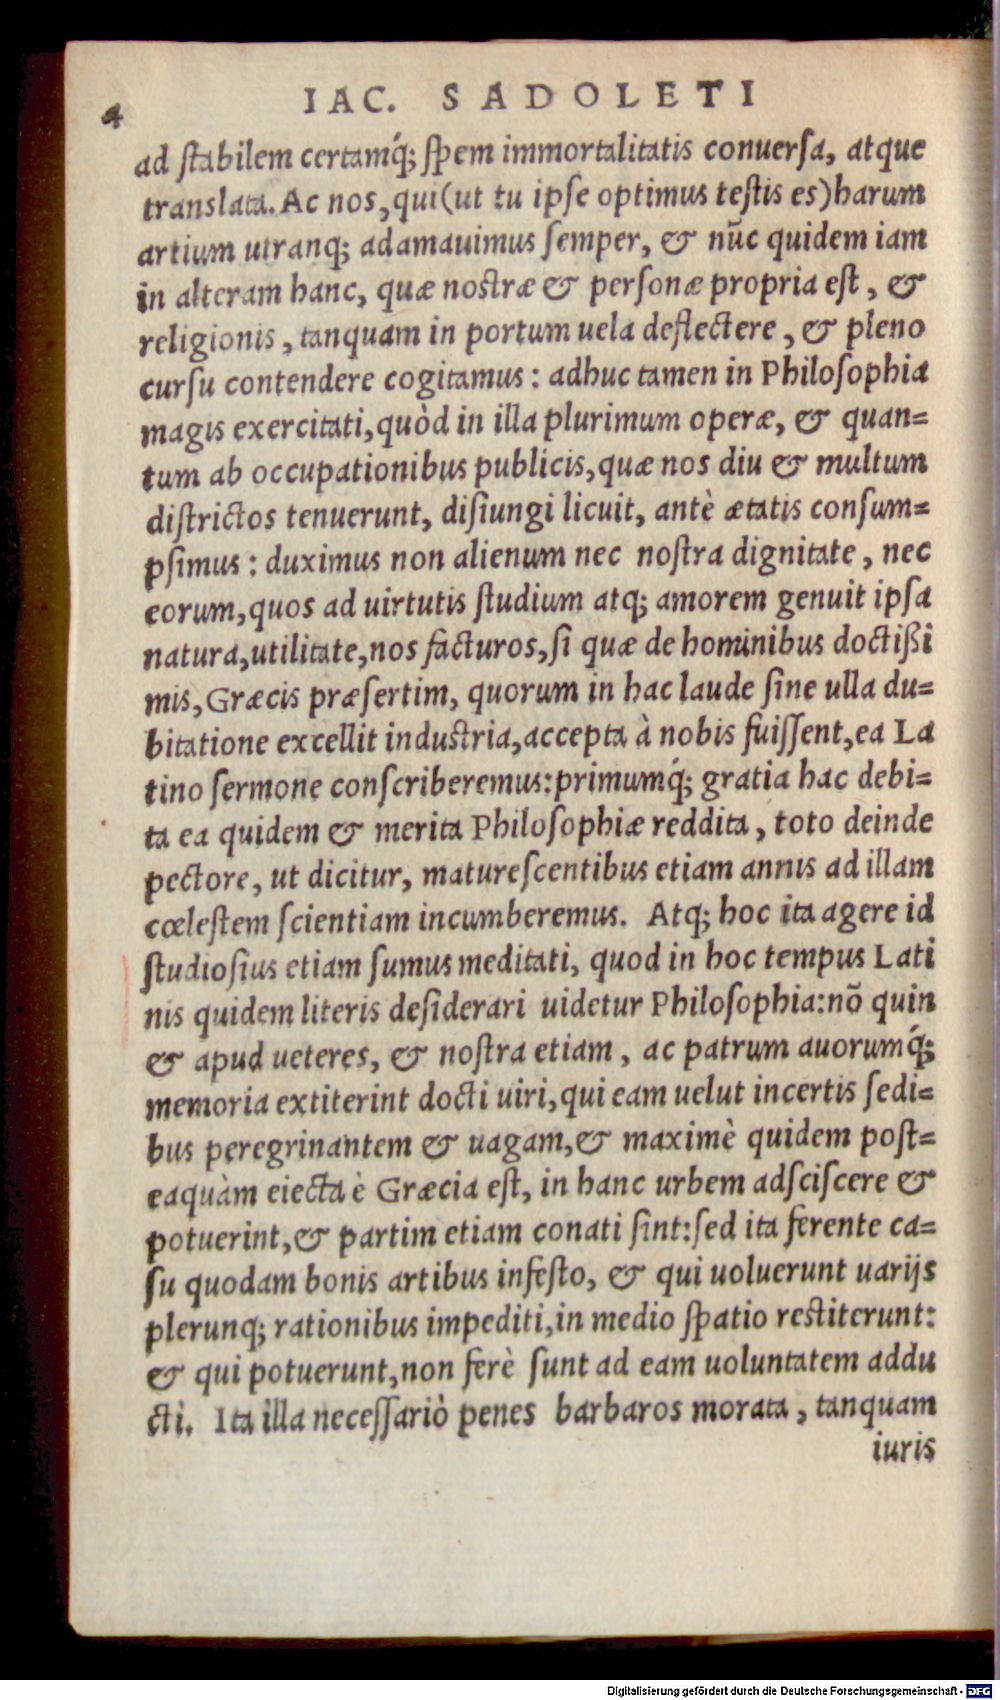 4
IAC. SADOLETI
ad ſtabilem certamq́; ſpem immortalitatis conuerſa, atque
translata. Ac nos, qui (ut tu ipſe optimus teſtis es) harum
artium utranq; adamauimus ſemper, & nūc quidem iam
in alteram hanc, quæ nostræ & perſonæ propria eſt, &
religionis, tanquam in portum uela deflectere, & pleno
curſu contendere cogitamus: adhuc tamen in Philoſophia
magis exercitati, quòd in illa plurimum operæ, & quan=
tum ab occupationibus publicis, quæ nos diu & multum
diſtrictos tenuerunt, diſiungi licuit, antè ætatis conſum=
pſimus: duximus non alienum nec noſtra dignitate, nec
eorum, quos ad uirtutis ſtudium atq; amorem genuit ipſa
natura, utilitate, nos facturos, ſi quæ de hominibus doctißi
mis, Græcis præſertim, quorum in hac laude ſine ulla du=
bitatione excellit industria, accepta à nobis fuiſſent, ea La
tino ſermone conſcriberemus: primumq́; gratia hac debi=
ta ea quidem & merita Philoſophiæ reddita, toto deinde
pectore, ut dicitur, matureſcentibus etiam annis ad illam
cœleſtem ſcientiam incumberemus. Atq; hoc ita agere id
ſtudioſius etiam ſumus meditati, quod in hoc tempus Lati
nis quidem literis deſiderari uidetur Philoſophia: nō quin
& apud ueteres, & noſtra etiam, ac patrum auorumq́;
memoria extiterint docti uiri, qui eam uelut incertis ſedi=
bus peregrinantem & uagam, & maximè quidem poſt=
eaquàm eiecta è Græcia eſt, in hanc urbem adſciſcere &
potuerint, & partim etiam conati ſint: ſed ita ferente ca=
ſu quodam bonis artibus infeſto, & qui uoluerunt uarijs
plerunq; rationibus impediti, in medio ſpatio reſtiterunt:
& qui potuerunt, non ferè ſunt ad eam uoluntatem addu
cti. Ita illa neceſſariò penes barbaros morata, tanquam
iuris
Digitalisierung gefördert durch die Deutsche Forschungsgemeinschaft - DFG